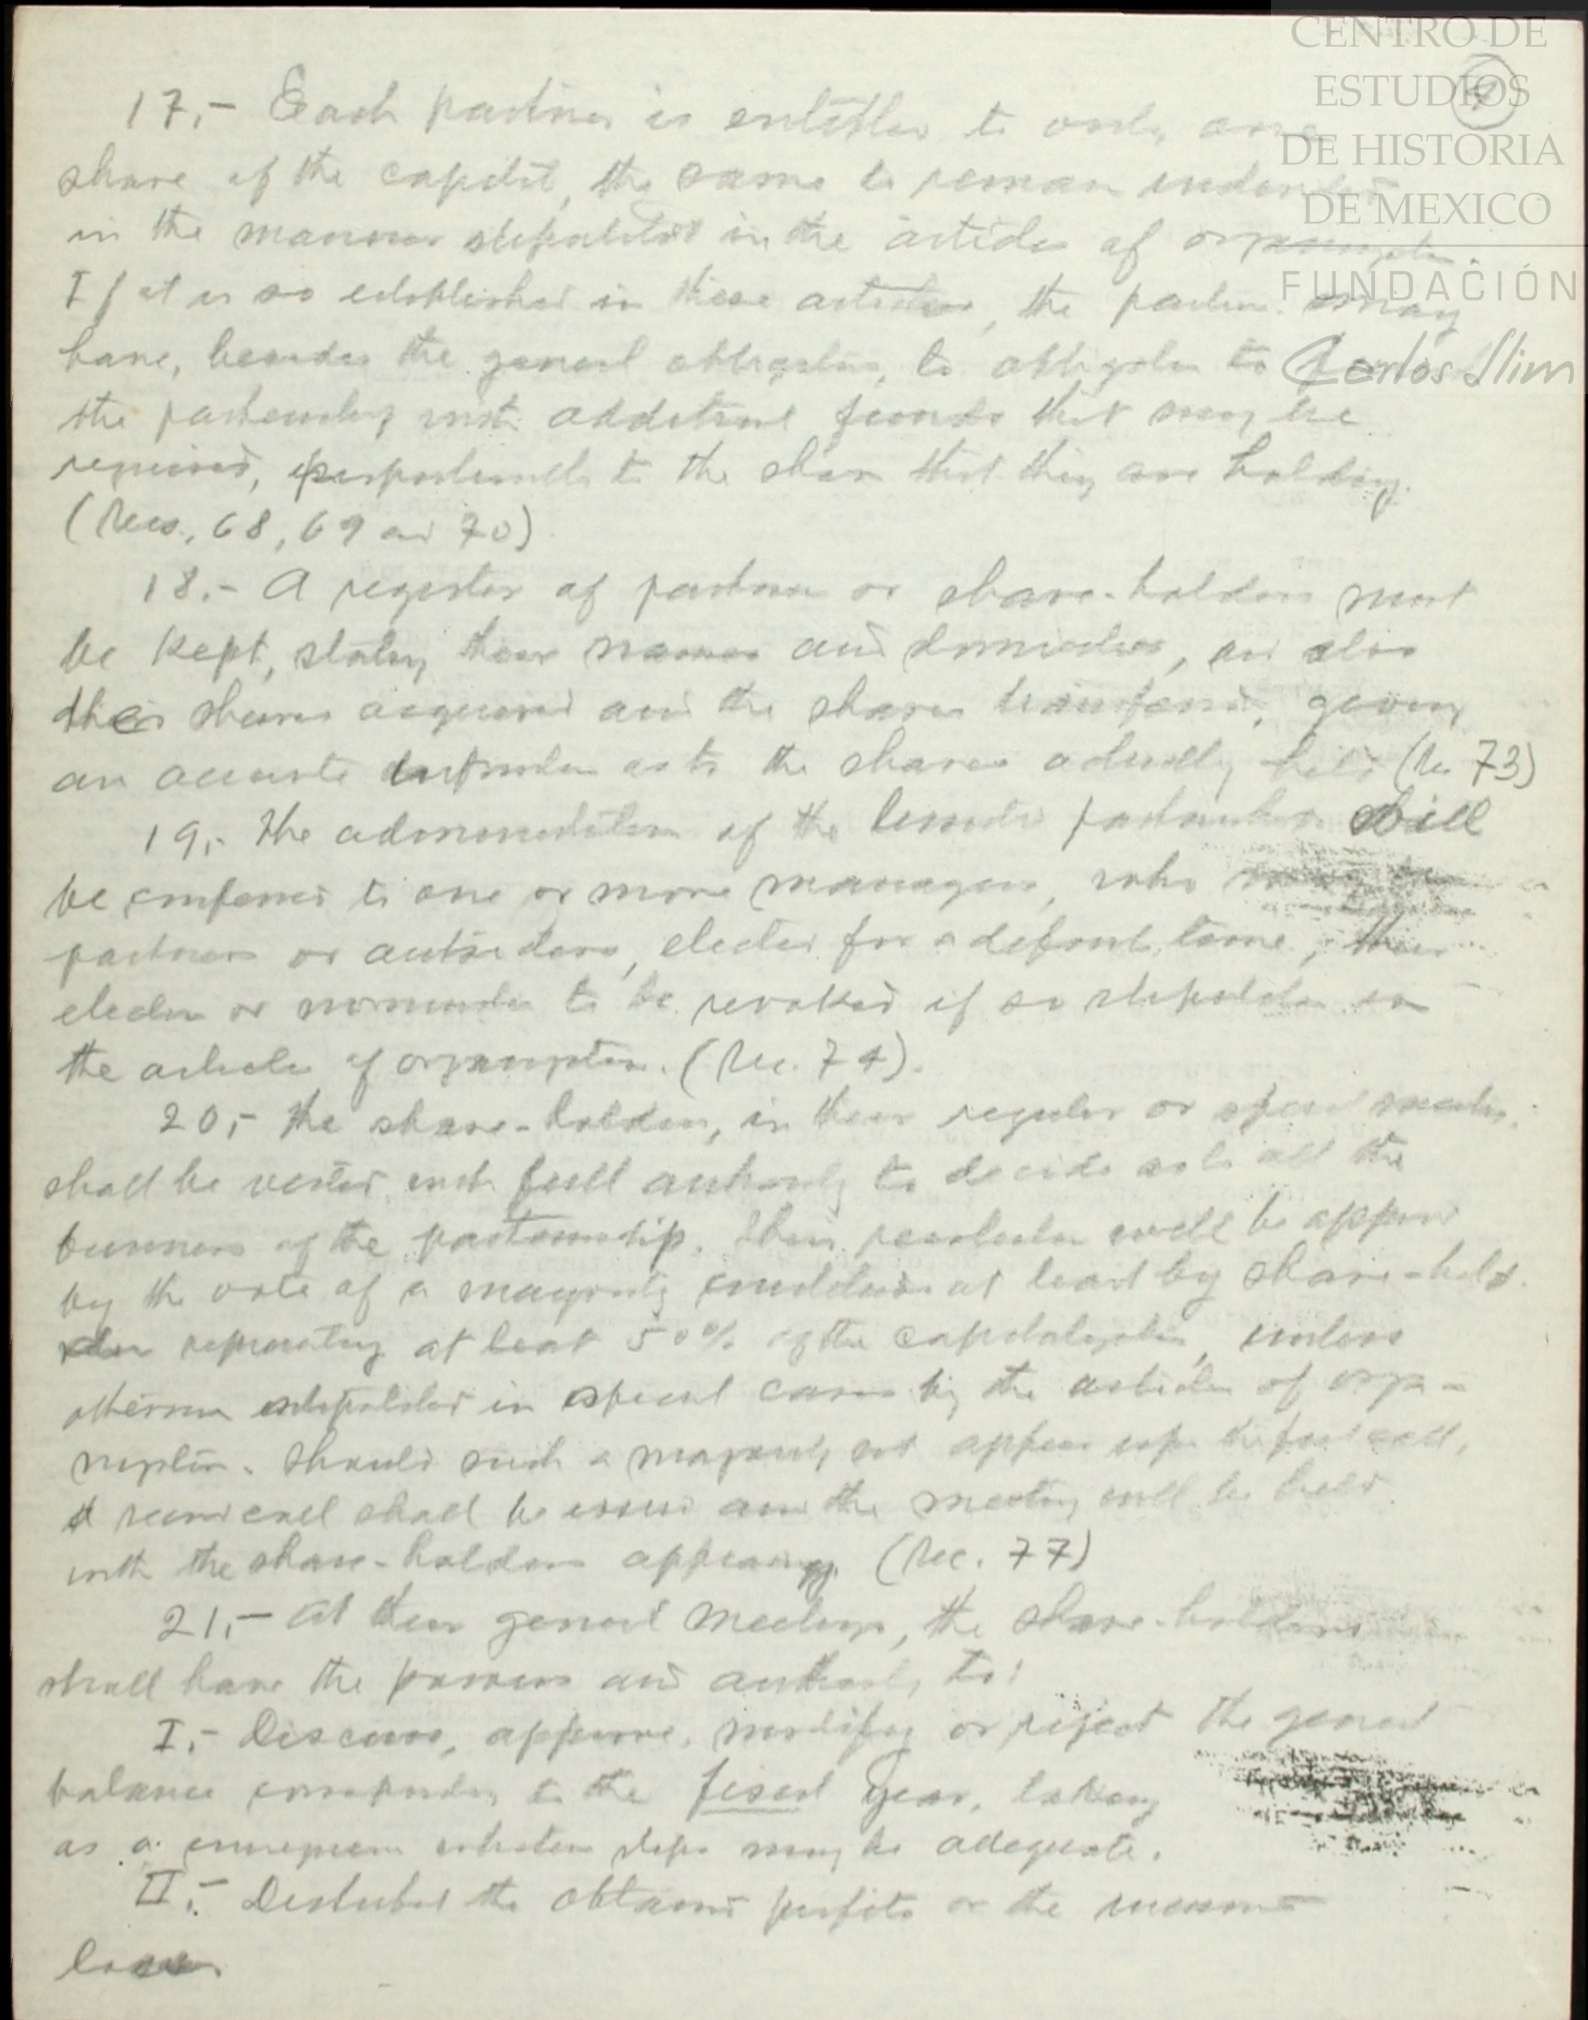 CENTRO DE
ESTUDIOS
DE HISTORIA
DE MEXICO
FUNDACIÓN
Carlos Slim
17.- Each partner is entitled to only one
share of the capital, the same to remain
in the manner stipulated in the articles of
If it is so established in these articles, the partners may
have, besides the general obligation, to
the partnership with additional funds that may be
required, proportionally to the share that they are holding.
(Secs. 68, 69 and 70)
18.- A register of partners or share-holders must
be kept, stating their names and domiciles, and also
their shares acquired and the shares transferred, giving
an accurate as to the shares actually held (Sec 73)
19.- The administration of the limited partnership shall
be conferred to one or more managers, who may be
partners or outsiders, elected for a definite time, their
election or to be revoked if so stipulated in
the articles of organization. (Sec. 74).
20.- The share-holders, in their regular or special meetings,
shall be vested with full authority to decide as to all the
business of the partnership. Their resolution will be approved
by the vote of a majority at least by share-hold-
ers representing at least 50% of the unless
otherwise stipulated in special cases by the articles of orga-
nization. Should such a majority not appear upon the first call,
a second call shall be issued and the meeting will be held
with the share-holders appearing. (Sec. 77)
21.- At their general meetings, the share-holders
shall have the powers and authority to:
I.- Discuss, approve, modify or reject the general
balance corresponding to the fiscal year, taking
as a steps may be adequate.
II.- Distribute the obtained profits or the
losses